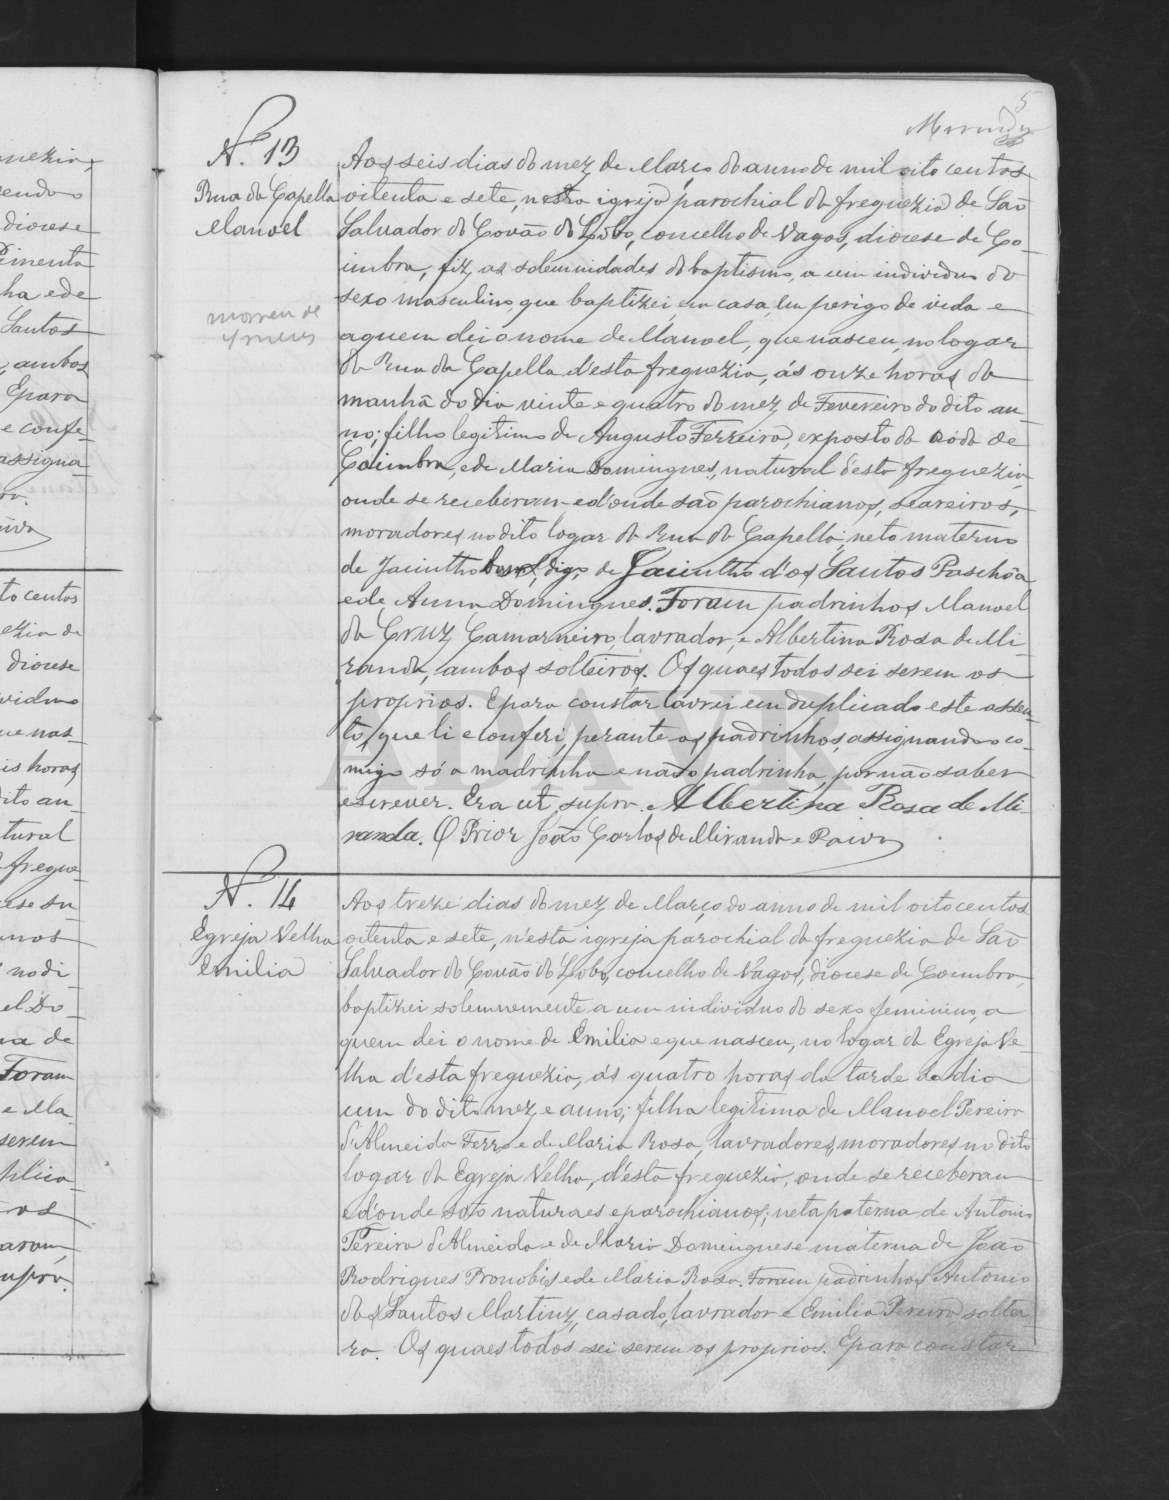 5
Miranda
N. 13
Rua da Capella
Manoel
morreu de
4 mezes
Aos seis dias do mez de Março do anno de mil oito centos
oitenta e sete, nesta igreja parochial da freguezia de São
Salvador do Covão do Lôbo, concelho de Vagos, diocese de Co-
imbra, fiz as solemnidades do baptismo, a um individuo do
sexo masculino, que baptizei, em casa, em perigo de vida e
a quem dei o nome de Manoel, que nasceu, no logar
da Rua da Capella d'esta freguezia, ás onze horas da
manhã do dia vinte e quatro do mez de Fevereiro do dito an-
no; filho legitimo de Augusto Ferreira, exposto da Róda de
Coimbra, e de Maria Domingues, natural d'esta freguezia
onde se receberam e d'onde são parochianos, seareiros,
moradores no dito logar da Rua da Capella; neto materno
de Jacintho digo de Jacintho d'os Santos Paschôa
e de Anna Domingues. Foram padrinhos Manoel
da Cruz Camarneiro, lavrador, e Albertina Rosa de Mi-
randa, ambos solteiros. Os quaes todos sei serem os
proprios. E para constar lavrei em duplicado este assen-
to, que li e conferi, perante os padrinhos, assignando co-
migo só a madrinha e não o padrinho, por não saber
escrever. Era ut supra. Albertina Rosa de Mi-
randa. O Prior João Carlos de Miranda e Paiva
N. 14
Egreja Velha
Emilia
Aos treze dias do mez de Março do anno de mil oitocentos
oitenta e sete, n'esta igreja parochial da freguezia de São
Salvador do Covão do Lobo, concelho de Vagos, diocese de Coimbra,
baptizei solemnemente a um individuo do sexo feminino, a
quem dei o nome de Emilia e que nasceu, no logar da Egreja Ve-
lha d'esta freguezia, ás quatro horas da tarde do dia
um do dito mez e anno; filha legitima de Manoel Pereira
d'Almeida Ferro e de Maria Rosa, lavradores, moradores no dito
logar da Egreja Velha, d'esta freguezia, onde se receberam
e d'onde são naturaes e parochianos; neta paterna de Antonio
Pereira d'Almeida e de Maria Domingues e materna de João
Rodrigues Pronobis e de Maria Rosa. Foram padrinhos Antonio
dos Santos Martins, casado, lavrador e Emilia Pereira soltei-
ra. Os quaes todos sei serem os proprios. E para constar
ADAVR